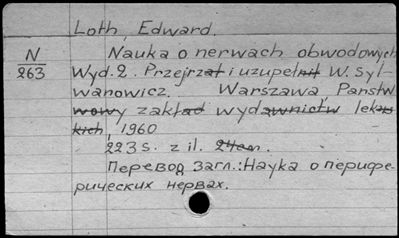 Loth, Edward.
N
263
Nauka o nerwach obwodowych
Wyd. 2. Przejrzał i uzupełnił W. Syl-
wanowicz. Warszawa Państw
wowy zakład wydawnictw lekar
skich, 1960
223 s. z il. 24 cm.
Перевод загл.: Наука о перифе-
рических нервах.